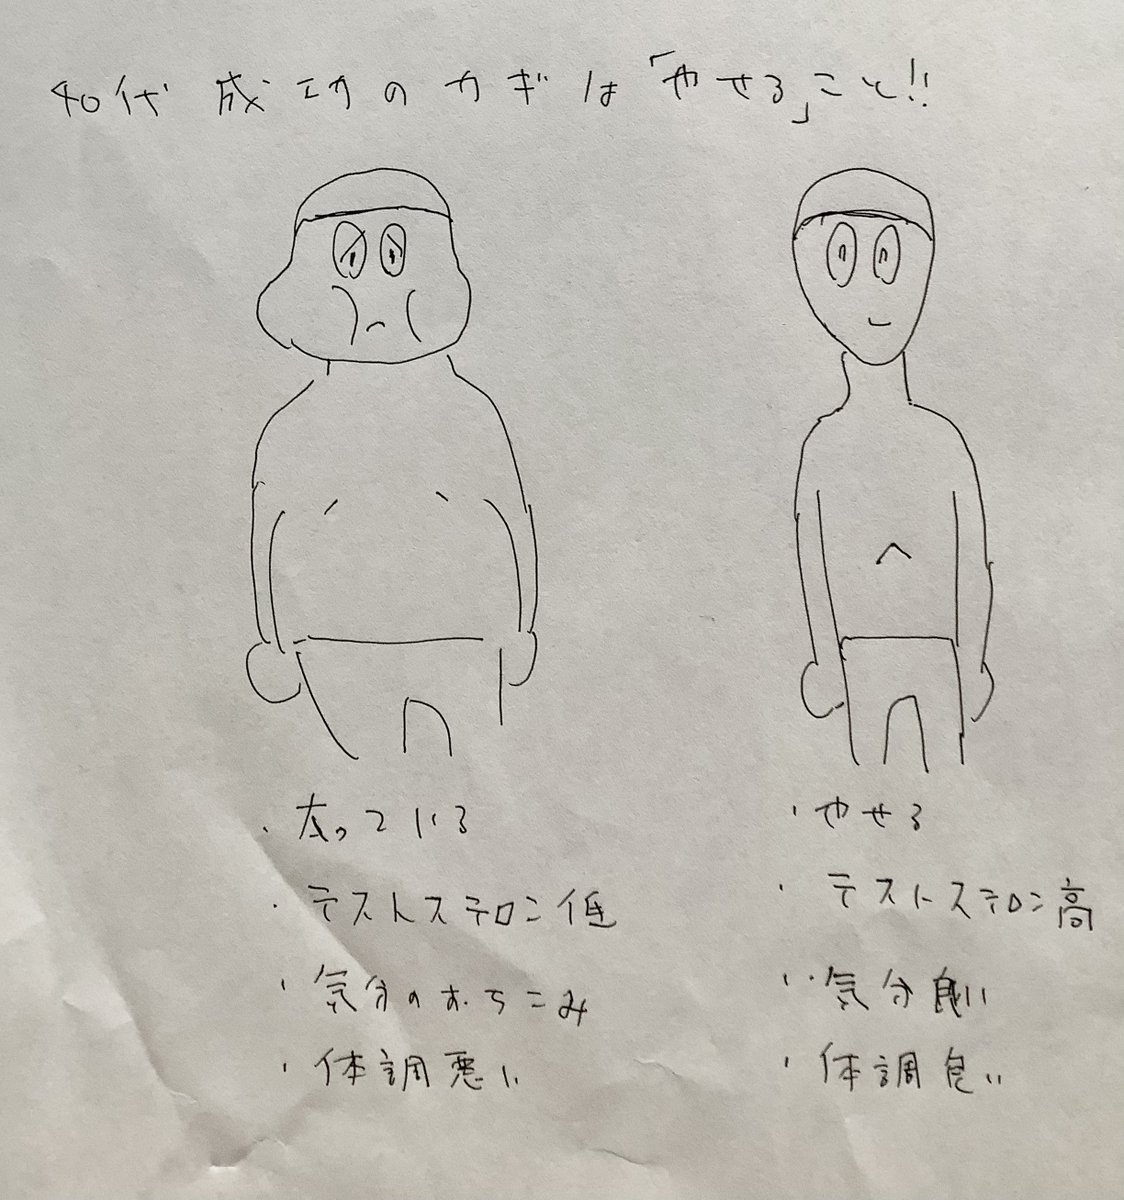 40代 成功のカギは「やせる」こと!!
・太っている
・テストステロン低
・気分のおちこみ
・体調悪い
・やせる
・テストステロン高
・気分良い
・体調良い